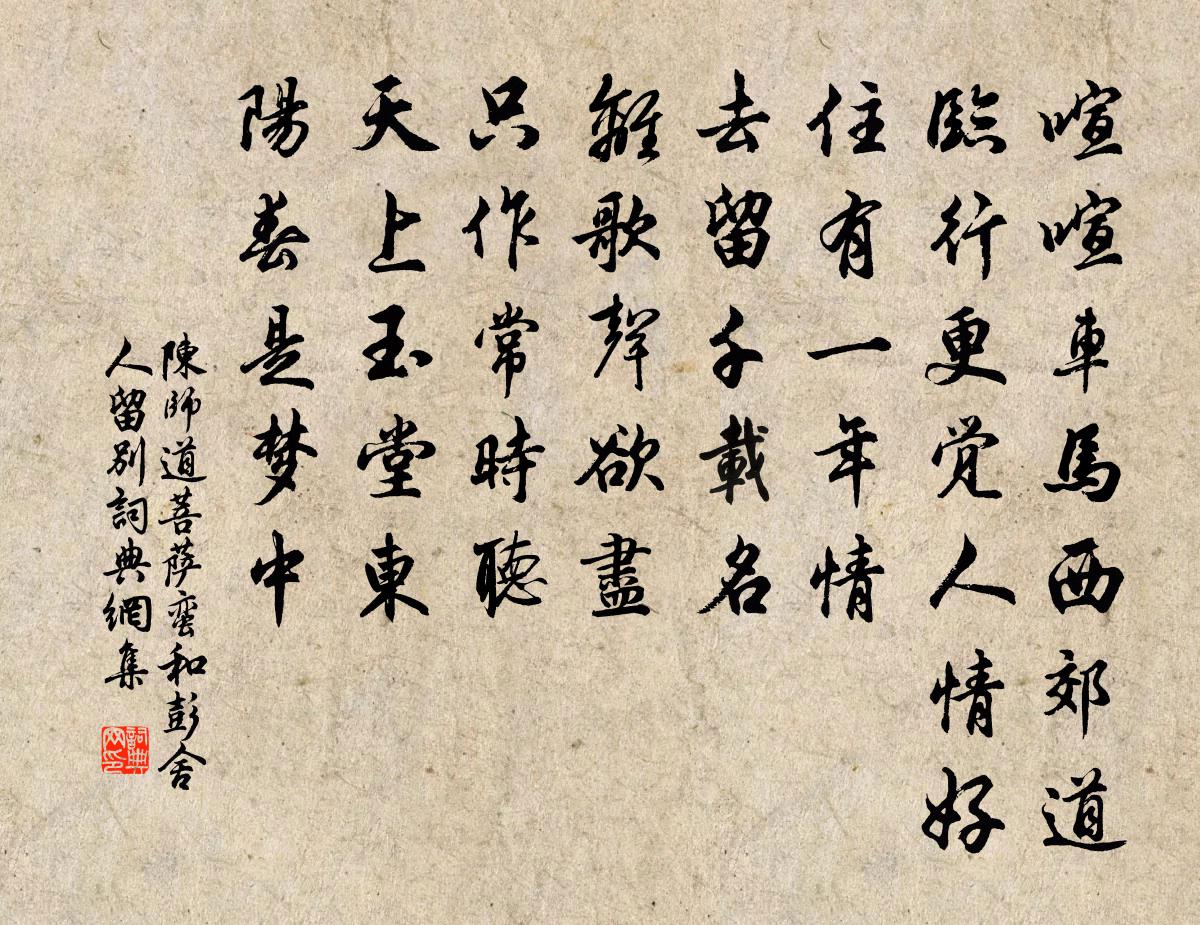 喧喧車馬西郊道
臨行更覺人情好
住有一年情
去留千載名
離歌聲欲盡
只作常時聽
天上玉堂東
陽春是梦中
陳師道菩萨蛮和彭舍
人留别詞典網集
詞典网印